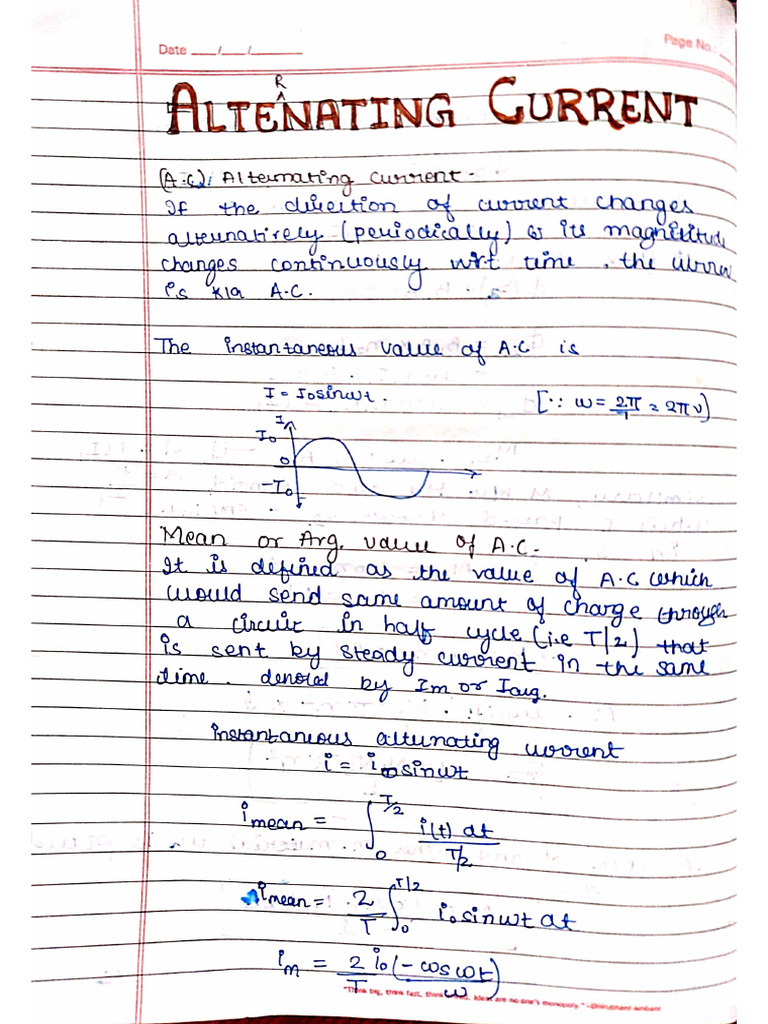 Date ___/___/______
Page No.
R
^
ALTENATING CURRENT
(A.C): Alternating Current -
If the direction of current changes
alternatively (periodically) & its magnitude
changes continuously wrt time, the
is k/a A.C.
The instantaneous value of A.C is
I = I₀sinωt.
[∵ ω = 2π/T = 2πν)
I
I₀
0
-I₀
Mean or Avg. value of A.C-
It is defined as the value of A.C which
would send same amount of charge through
a circuit in half cycle (i.e T/2) that
is sent by steady current in the same
time. denoted by Im or Iavg.
instantaneous alternating current
i = i₀sinωt
i mean = ∫₀^T/2 i(t) dt / T/2
i mean = 2/T ∫₀^T/2 i₀ sinωt dt
i m = 2 i₀/T (-cosωt/ω)
"Think big, think fast, think Ideas are no one's monopoly." -Dhirubhani Ambani